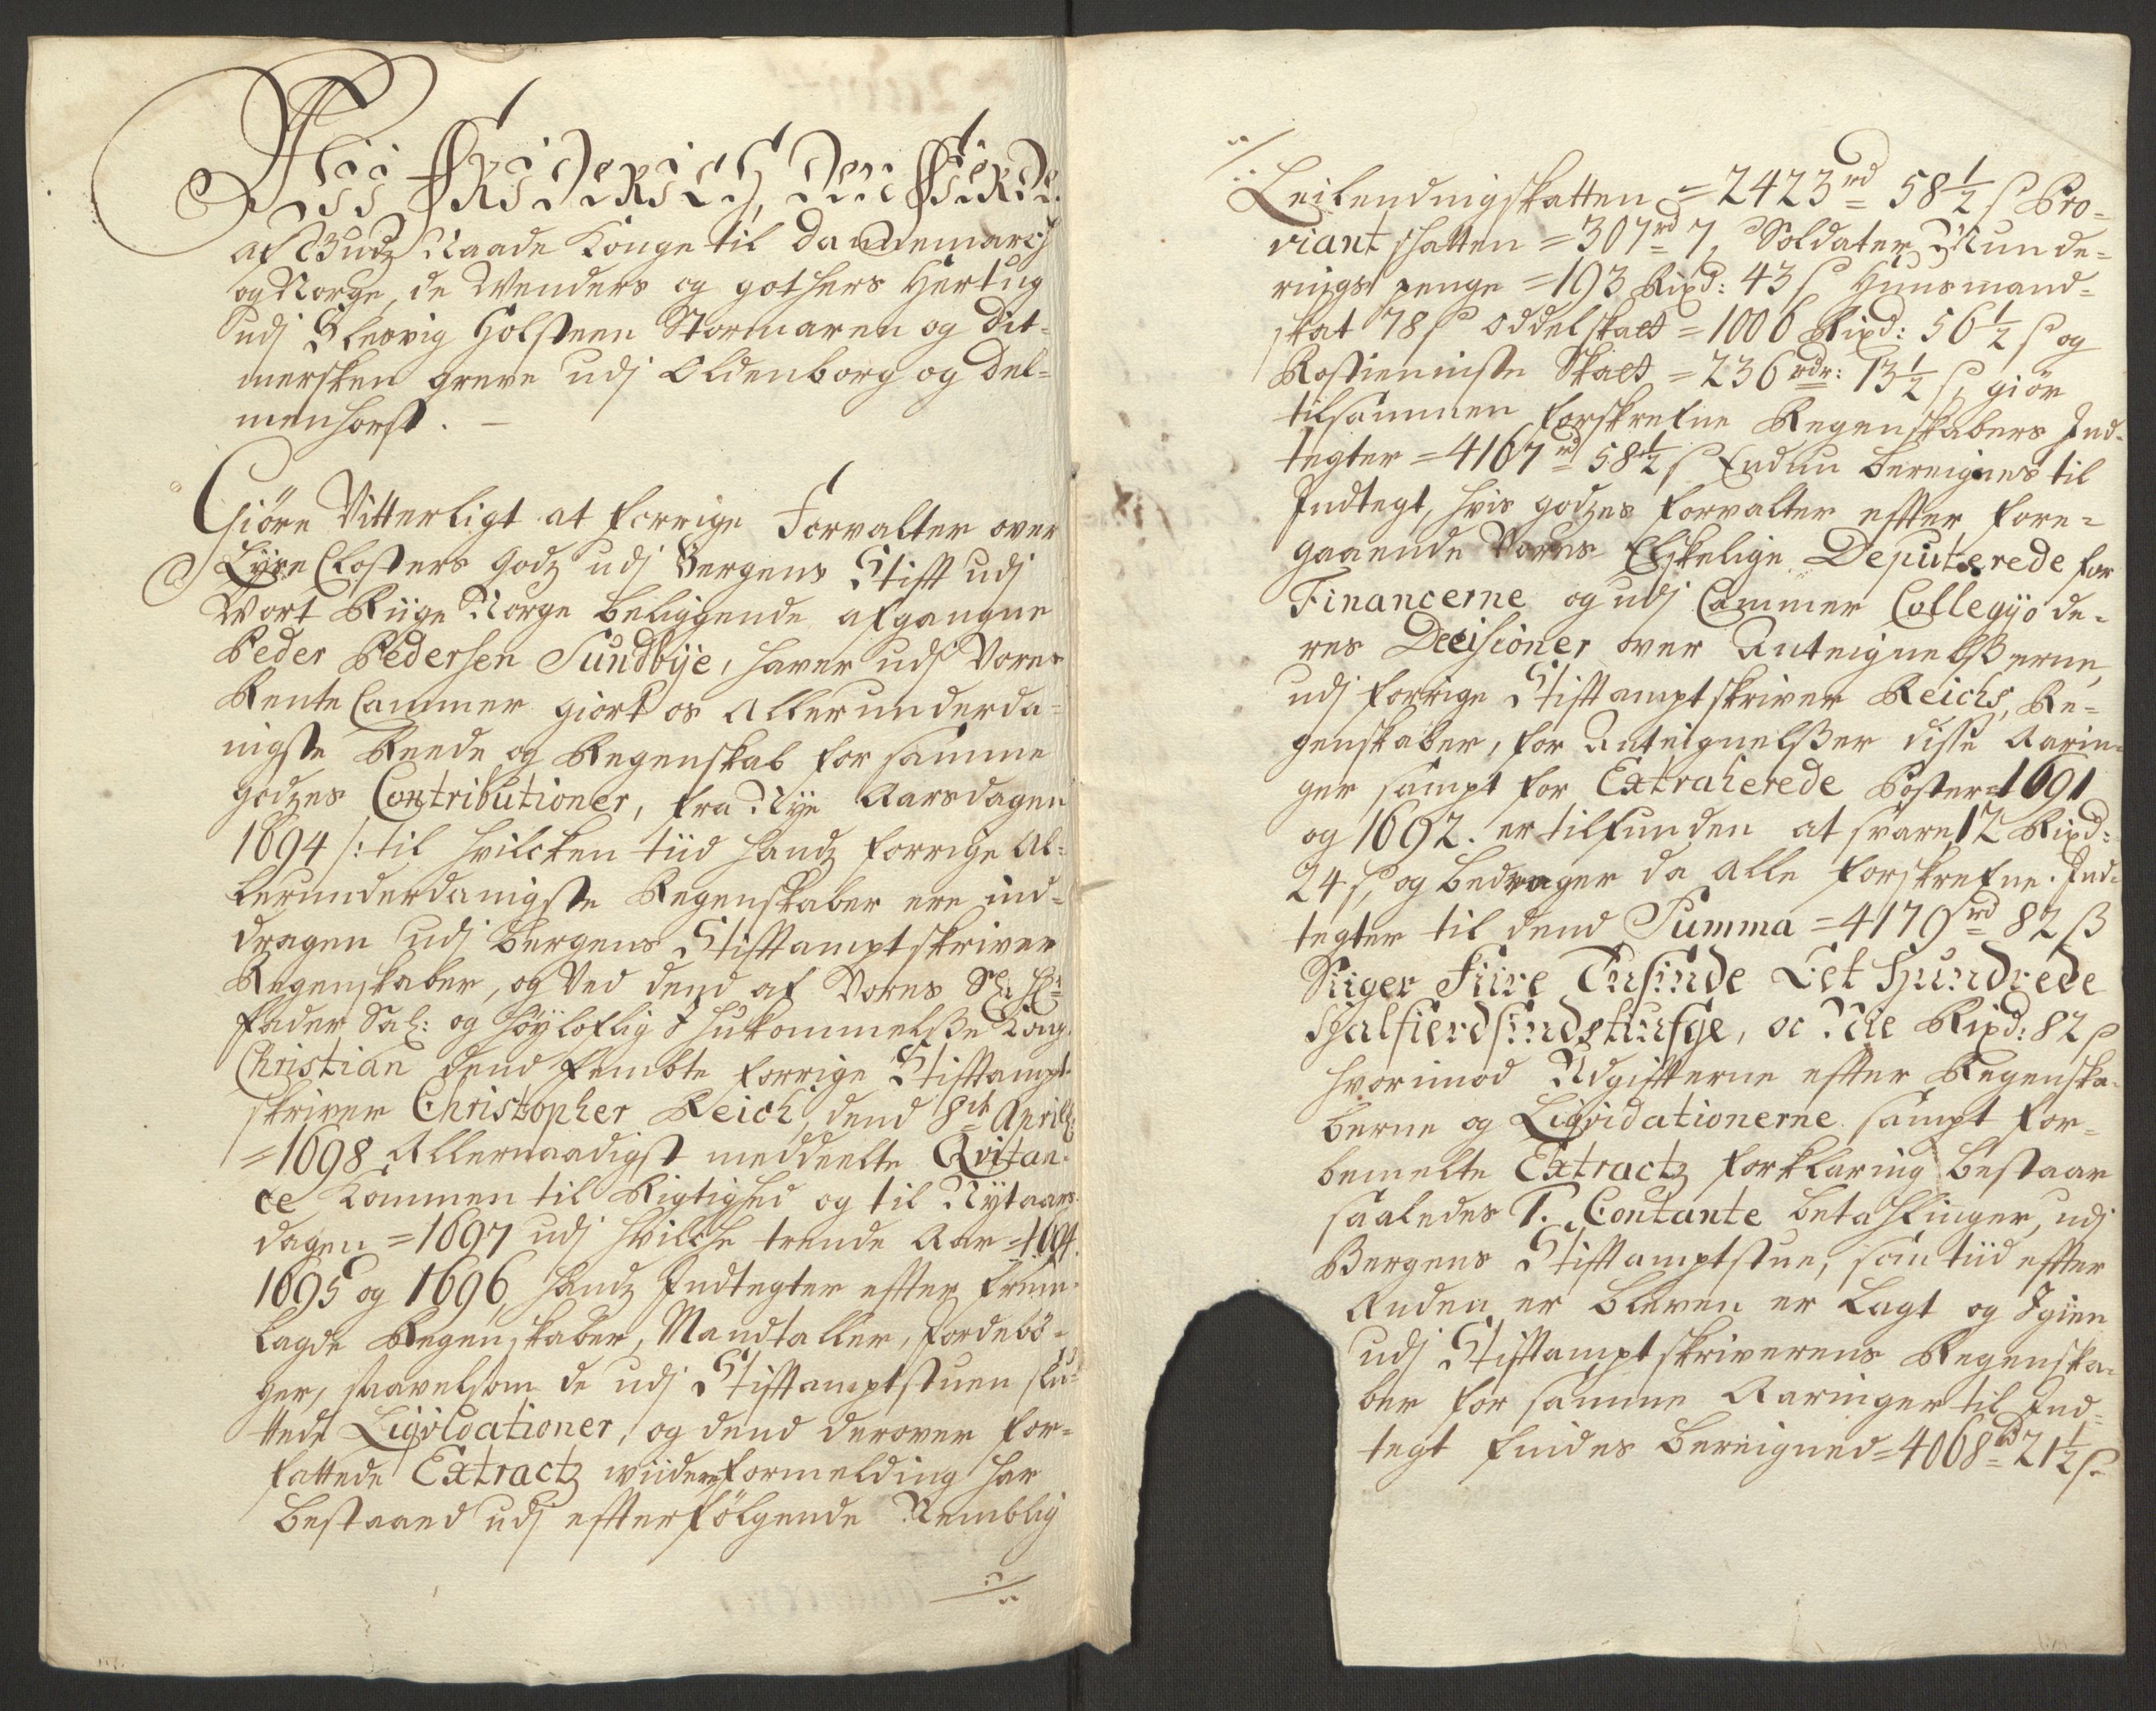 Wii Friderich, den Fierde
af Gudz Naade Konge til Dannemarch
og Norge, de Wenders og gothers Hertug
udj Slesvig Holsteen Stormaren og Dit-
mersken greve udj Oldenborg og Del-
menhorst. –
Giöre Vitterligt at forrige Forvalter over
Lyse Closters Godz udj Bergens Stift udj
Vort Riige Norge beliggende afgangne
Peder Pedersen Sundbye, haver udj Vores
Rente Cammer giort os Allerunderda-
nigste Reede og Regenskab for samme
godzes Contributioner, fra Nye Aarsdagen
1694 /: til hvilcken tiid handz forrige Al-
lerunderdanigste Regenskaber ere ind-
dragen udj Bergens Stiftamptskriver
Regenskaber, og Ved dend af Vores Sl: Hr
Fader Sal: og Höyloflig Ihukommelsse Kong
Christian dend Fembte forrige Stiftampt-
skriver Christopher Reich, dend 8de Aprilj
=1698 Allernaadigst meddeelte Qvitan-
ce kommen til Rigtighed og til Nytaars
dagen =1697 udj hvilche trende Aar =1694.
1695 og 1696, handz Indtegter efter frem-
lagde Regenskaber, Mandtaller, Jordebö-
ger, saavelsom de udj Stiftamptstuen slu-
ttede Liqvidationer, og dend derover for-
fattede Extractz wiidere formelding har
bestaaed udj efterfölgende Nemblig
Leilendingskatten =2423 rd 58 1/2 s Pro-
viant skatten =307 rd 7, Soldater Munde-
rings penge =193 Rixd: 43 s Huusmand-
skat 78 s Oddelskatt =1006 Rixd: 56 1/2 s og
Rostienniste Skatt =236 rdr: 13 1/2 s, giör
tilsammen forskrefne Regenskabers Ind-
tegter =4167 rd 58 1/2 s Endnu bereignes til
Indtegt, hvis godzes Forvalter efter fore-
gaaende Vores Elskelige Deputerede for
Financerne og udj Cammer Collegyo de-
res Decisioner over Anteignelsserne,
udj forrige Stiftamptskriver Reichs, Re-
genskaber, for Anteignelsser disse Aarin-
ger sampt for Extraherede Poster =1691
og 1692. er tilfunden at svare 12 Rixd:
24 s, og bedrager da alle forskrefne Ind-
tegter til dend Summa =4179 rd 82 ß
Siiger Fiire Tusinde Eet Hundrede
Halfierdsindstiufge, oc Nie Rixd: 82 s
hvorimod Udgifterne efter Regenska-
berne og Liqvidationerne sampt for-
bemelte Extractz forklaring bestaar
saaledes T. Contante betahlinger, udj
Bergens Stiftamptstue, som tiid efter
Anden er bleven er Lagt og Igien
udj Stiftamptskriverens Regenska-
ber for samme Aaringer til Ind-
tegt findes bereigned =4068 rd 21 1/2 s